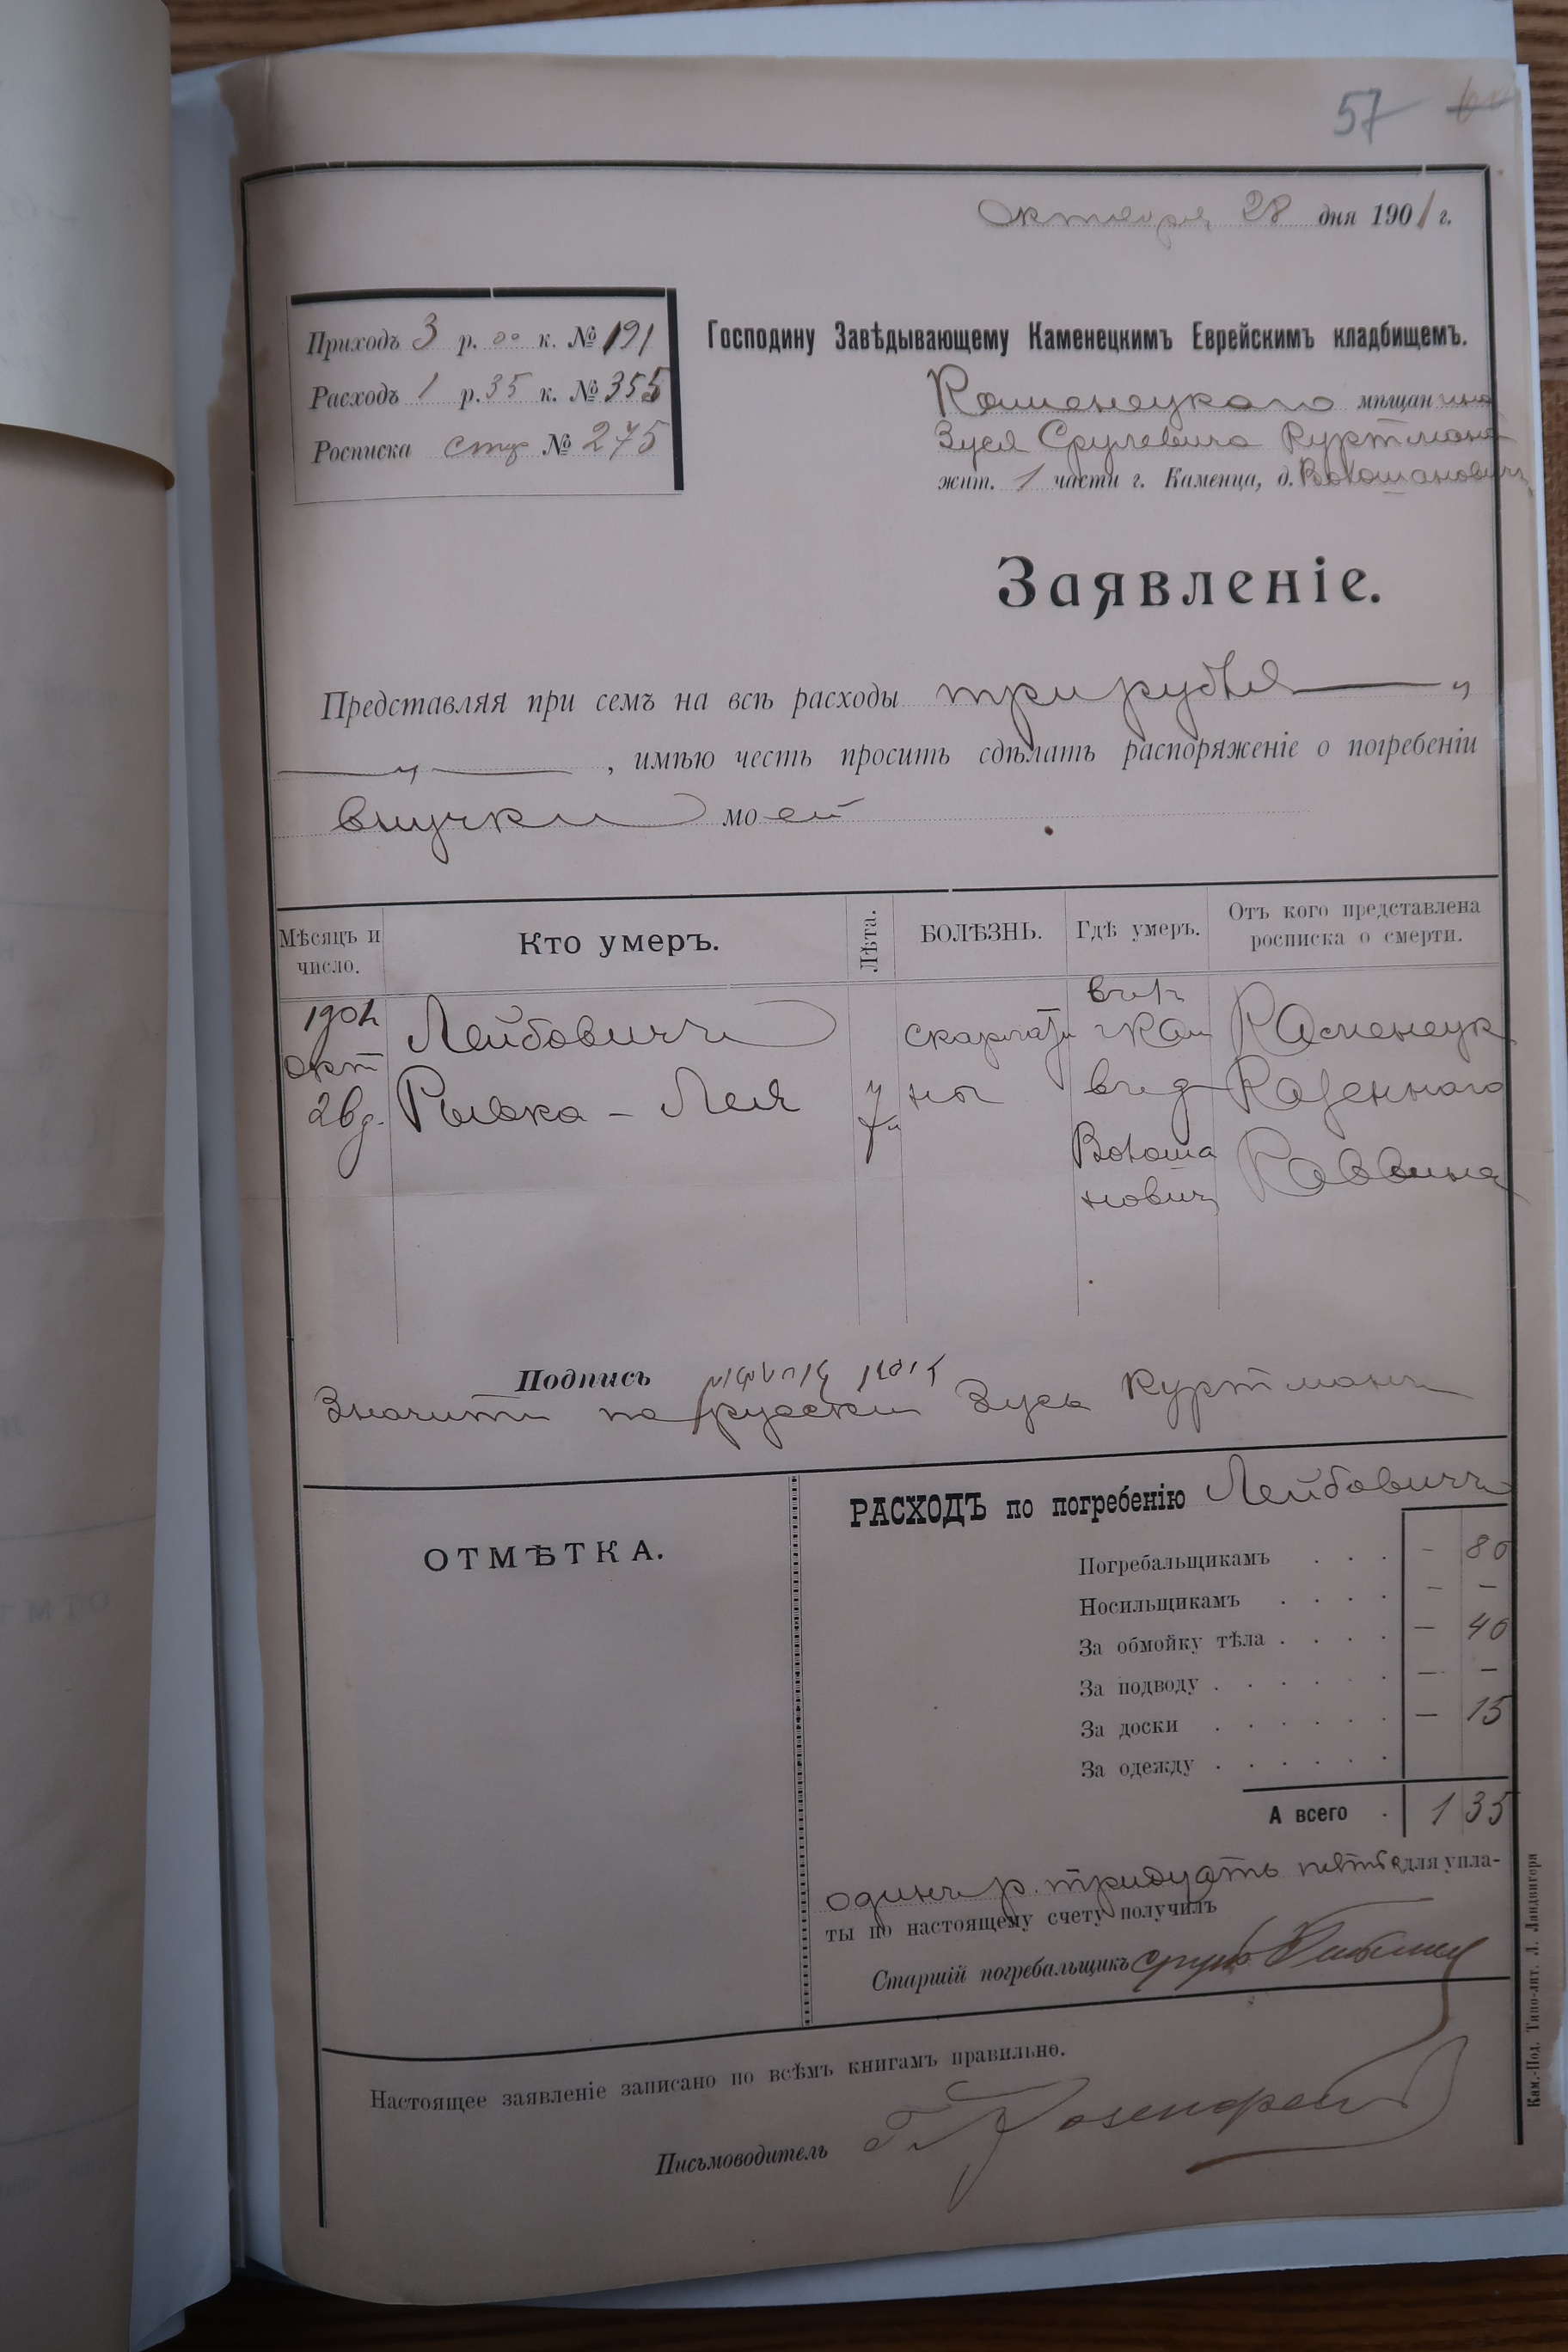 57
октября 28 дня 1901 г.
Приходъ 3 р. 00 к. № 191
Расходъ 1 р. 35 к. № 355
Росписка № 275
Господину Завѣдывающему Каменецкимъ Еврейскимъ кладбищемъ.
Каменецкаго мѣщанина
Зуся Срулевича Куртмана
жит. 1 части г. Каменца, д. Вотошановичъ
Заявленіе.
Представляя при семъ на всѣ расходы три рубля — „
— „ —, имѣю честь просить сдѣлать распоряженіе о погребеніи
внучки моей
Мѣсяцъ и число. Кто умеръ. Лѣта. БОЛѢЗНЬ. Гдѣ умеръ. Отъ кого представлена росписка о смерти.
1901 Лейбовичъ скарлати въ г. Кам Каменецк
окт
26 д. Рывка - Лея ны въ д Казеннаго
Вотоша
новичъ Раввина
Подпись
Значитъ по русски Зусь Куртманъ
ОТМѢТКА.
РАСХОДЪ по погребенію Лейбовичъ
Погребальщикамъ . . . — 80
Носильщикамъ . . . . — —
За обмойку тѣла . . . . — 40
За подводу . . . . . — —
За доски . . . . . — 15
За одежду . . . . .
А всего . 1 35
одинъ р. тридцать пять к для упла-
ты по настоящему счету получилъ
Старшій погребальщикъ Сруль
Настоящее заявленіе записано по всѣмъ книгамъ правильно.
Письмоводитель
Кам.-Под. Типо-лит. Л. Ландвигера